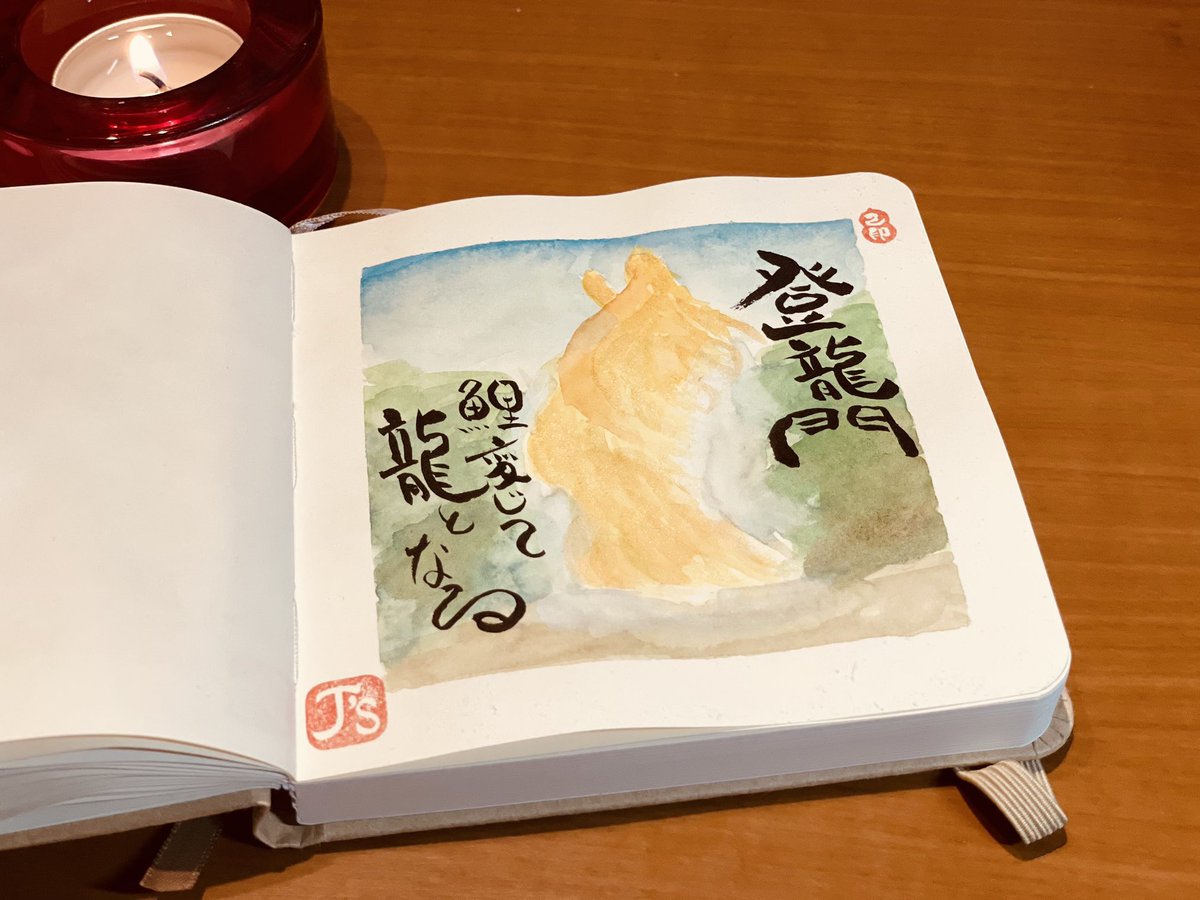 登龍門
鯉変じて
龍となる
J's